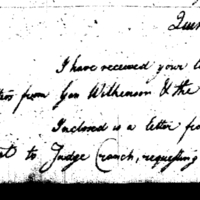 I have received your
from Gen Wilkinson & the
Inclosed is a letter fro
to Judge Cranch, requesting